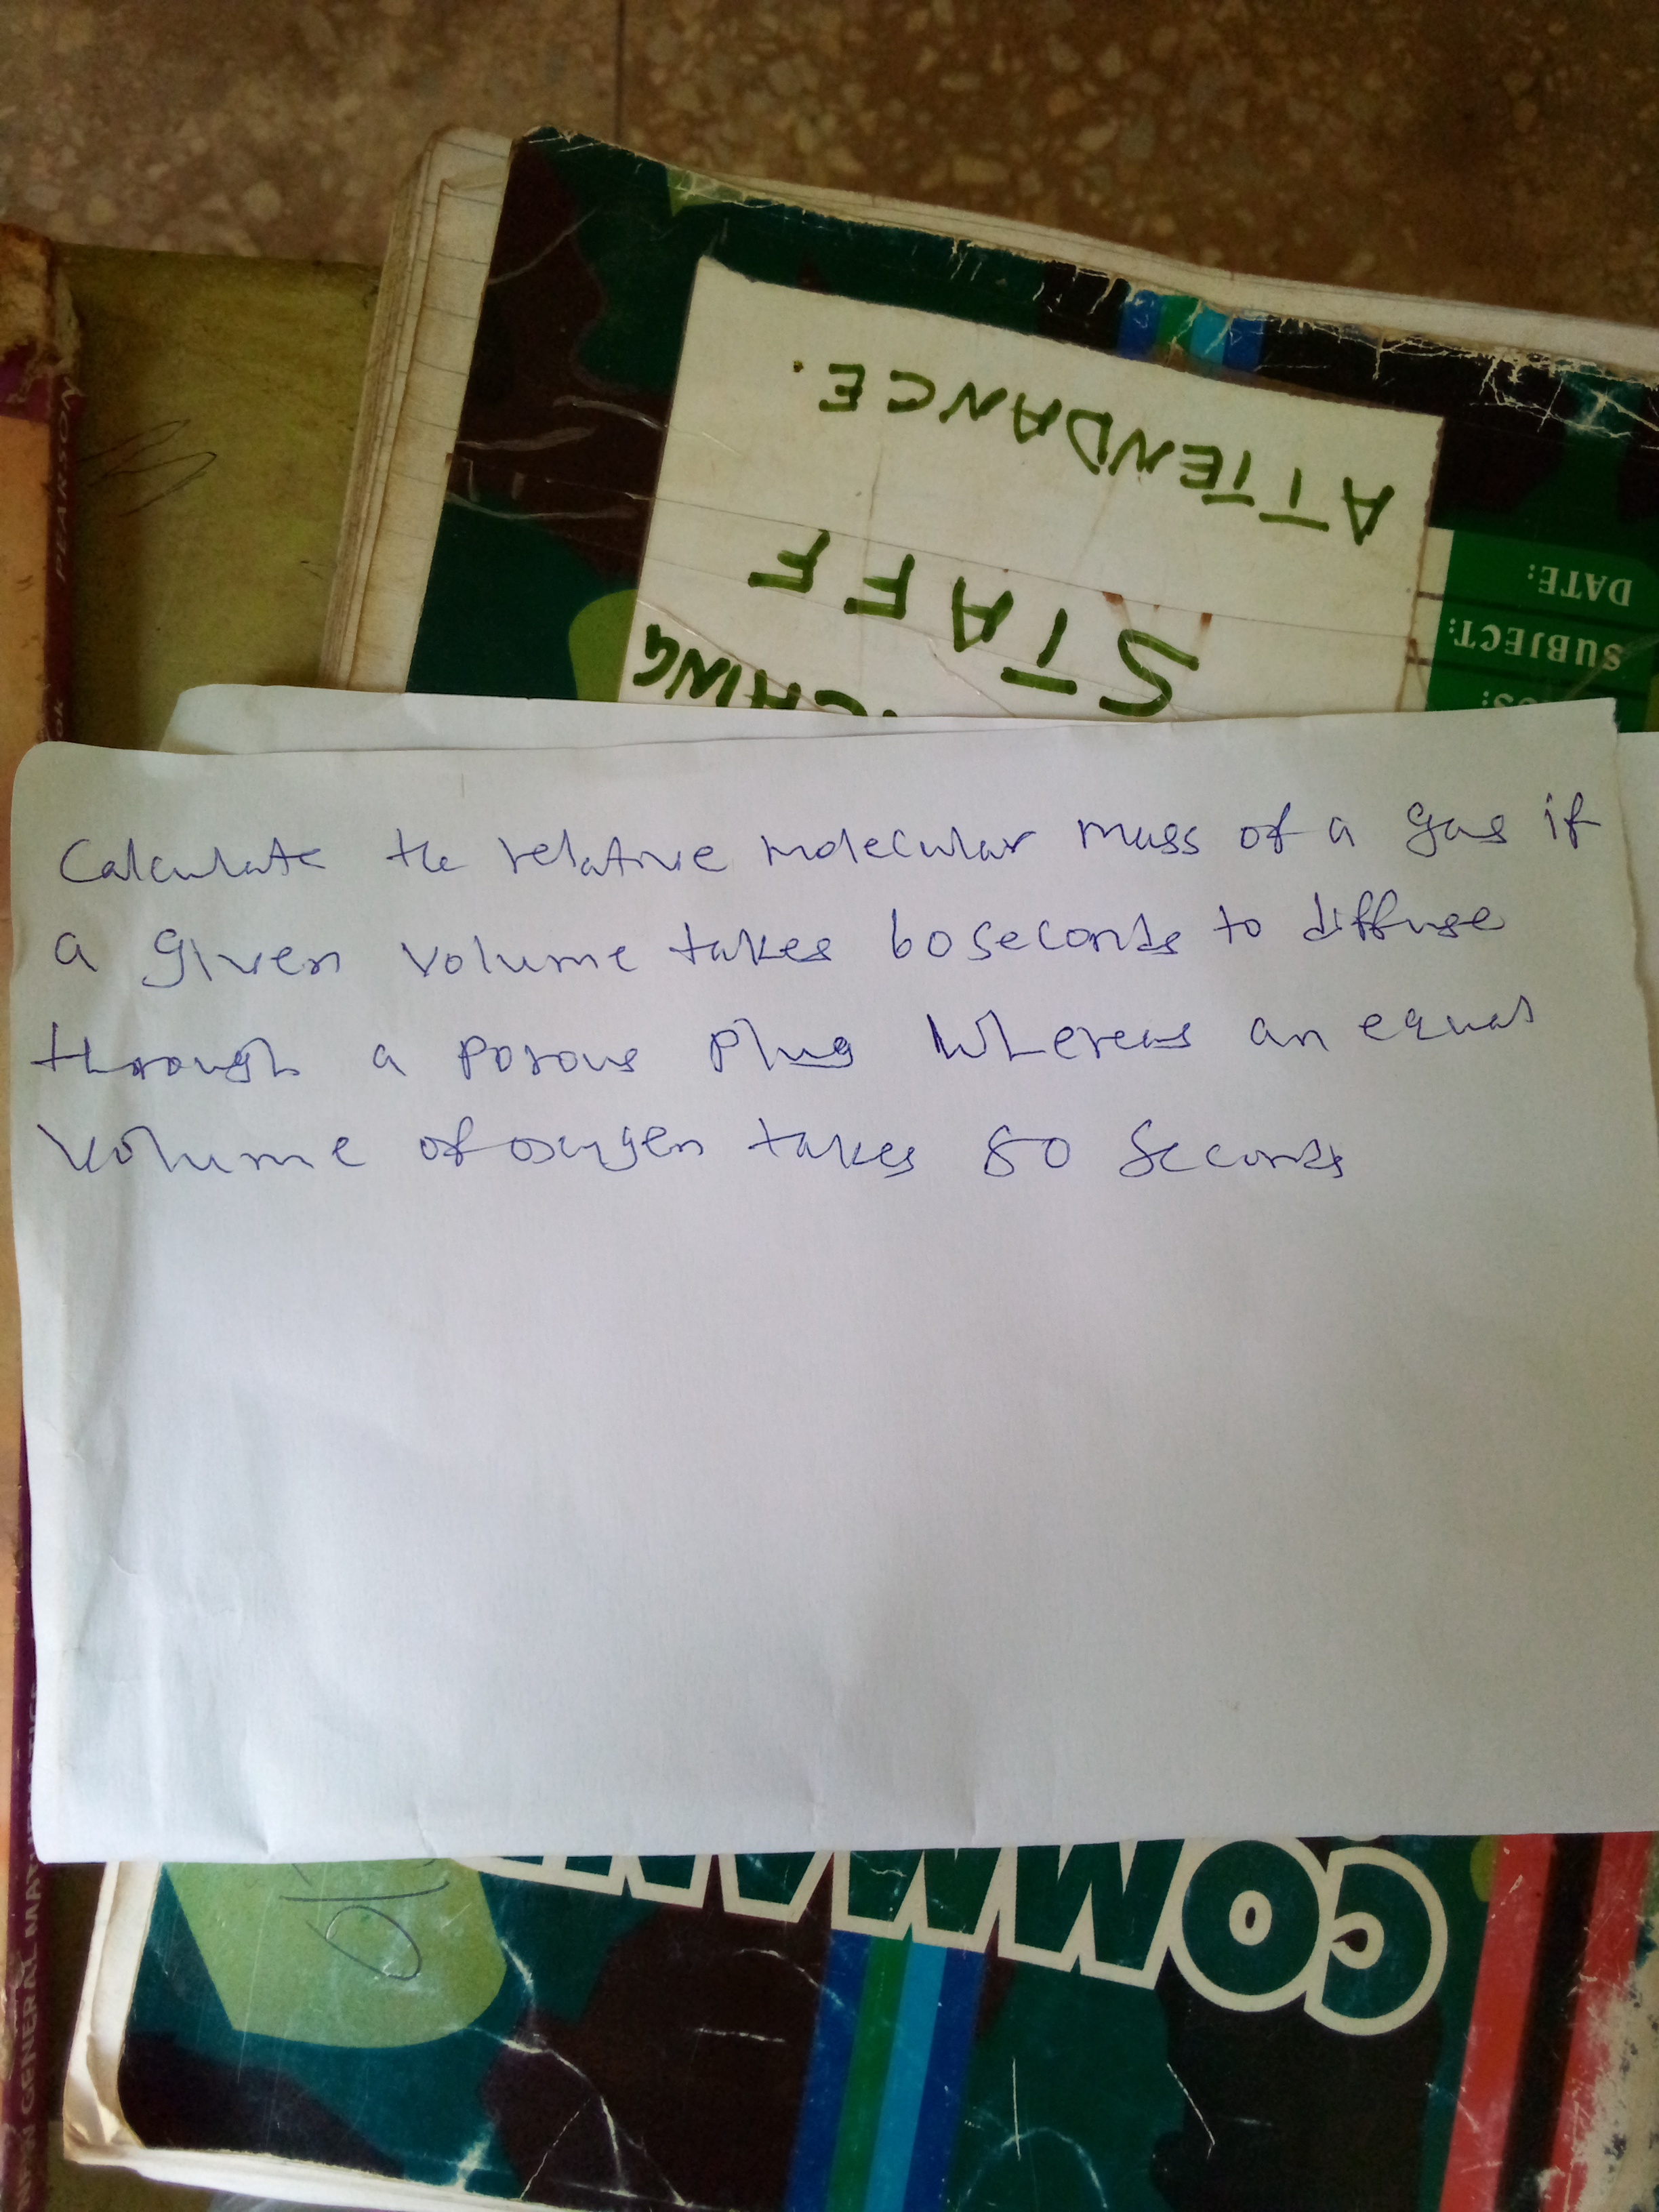 PEARSON
ATTENDANCE.
STAFF
CHING
DATE:
SUBJECT:
Calculate the relative molecular mass of a gas if
a given volume takes 60 seconds to diffuse
through a porous plug Whereas an equal
volume of oxygen takes 80 seconds
COMMAN
NEW GENERAL MATHEMATICS